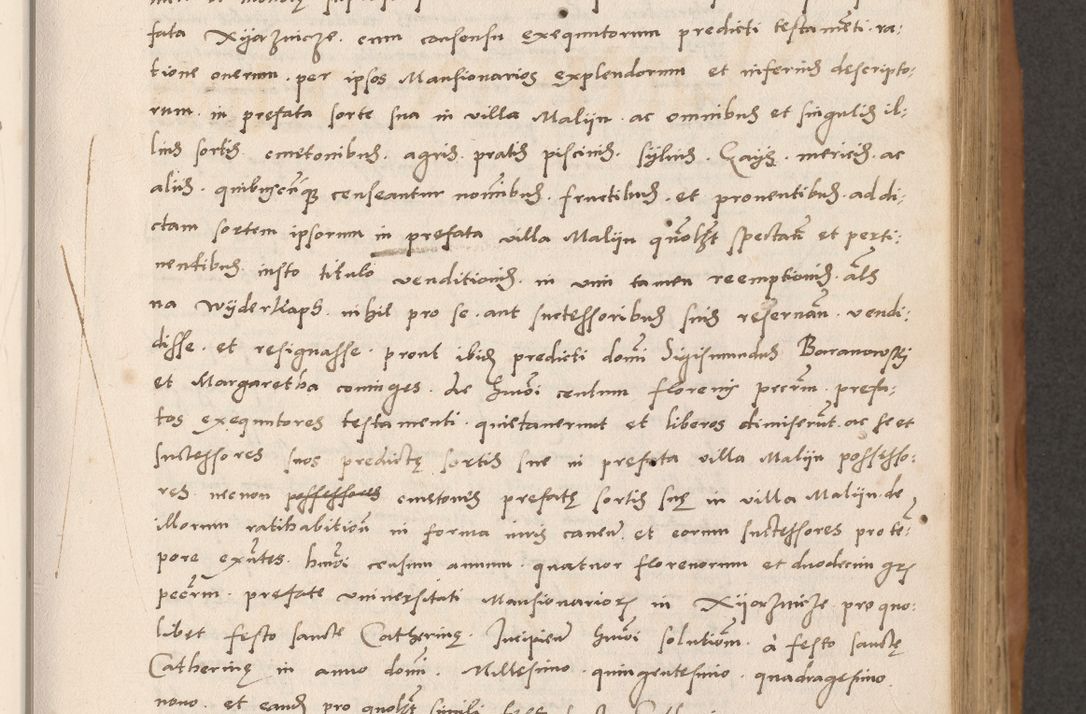 fata Xyaznicze. cum consensu exequutorum predicti testamẽti. ra:
tione onerum. per ipsos Mansionarios explendorum et inferius descripto:
rum. in prefata sorte sua in villa Malijn. ac omnibus et singulis il:
lius sortis. cmetonibus. agris. pratis piscinis. sylvis. Gayis. mericis. ac
aliis. quibuscũque censeantur nomĩbus. fructibus. et proventibus. ad di:
ctam sortem ipsorum in prefata villa Malijn quõlzt spectañ et perti:
nentibus. iusto titulo venditionis. in vim tamen reemptionis. als
na Wyderkaph. nihil pro se. aut successoribus suis reservañ. vendi:
disse. et resignasse. prout ibidẽ predicti domĩ Sigismundus Baranowsky
et Margaretha coniuges. de hmõi centum florenis pecũm. prefa:
tos exequutores testamenti. quietaverunt et liberos dimiserũt. ac se et
successores suos predictę sortis sue in prefata villa Malijn possesso:
res. necnon possessores cmetones prefatę sortis suę in villa Malijn. de
illorum ratihabitioñ in forma iuris caveñ. et eorum successores pro tẽ:
pore exñtes. hmõi censum annum. quatuor florenorum et duodecim grs
pecũm. prefate universitati Mansionariorum in Xyaznicze. pro quo:
libet festo sancte Catherinę. Incipieñ hmõi solutioñm. à festo sanctę
Catherinę in anno domĩ. Millesimo. quingentesimo. quadragesimo
nono. et eandẽ pro quolzt simili